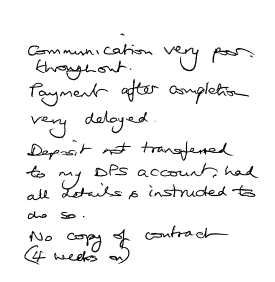 Communication very poor
throughout.
Payment after completion
very delayed.
Deposit not transferred
to my DPS account; had
all details & instructed to
do so.
No copy of contract
(4 weeks on)